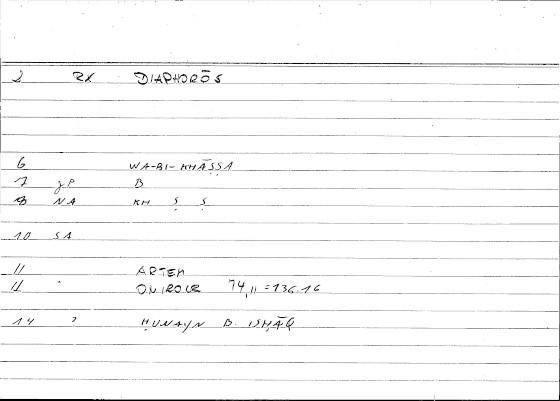 2 RX DIAPHORŌS
6 WA-BI-KHĀṢṢA
7 JP B
8 NA KH Ṣ Ṣ
10 SA
11 ARTEM
11 " ONIROCR 74,11 = 136.16
14 ? ḤUNAYN B. ISḤĀQ